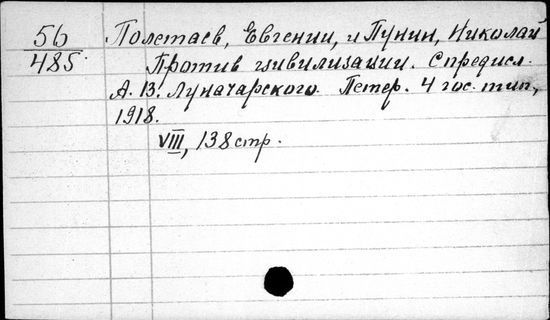 56 Полетаев, Евгений, и Пунин, Николай
485 Против цивилизации. С предисл.
А. В. Луначарского. Петер. 4 гос. тип,
1918.
VIII, 138 стр.